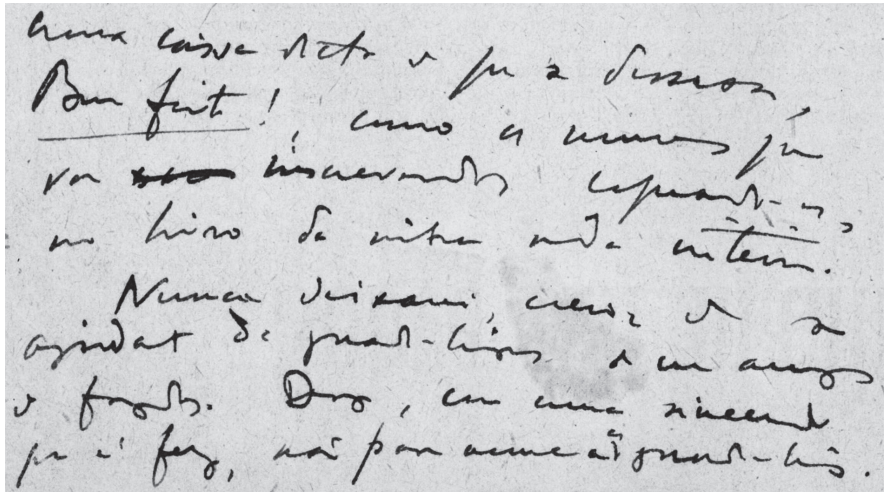 coisa dicta e que a
Bem feito!, como os numeros que
vou inscrevendo, copiando-os,
no livro da vida inteira.
Nunca deixarei, creio, de ser
ajudante de guarda-livros de um armazem
de fazendas. Desejo, com uma sinceridade
que é feroz, não passar nunca a guarda-livros.